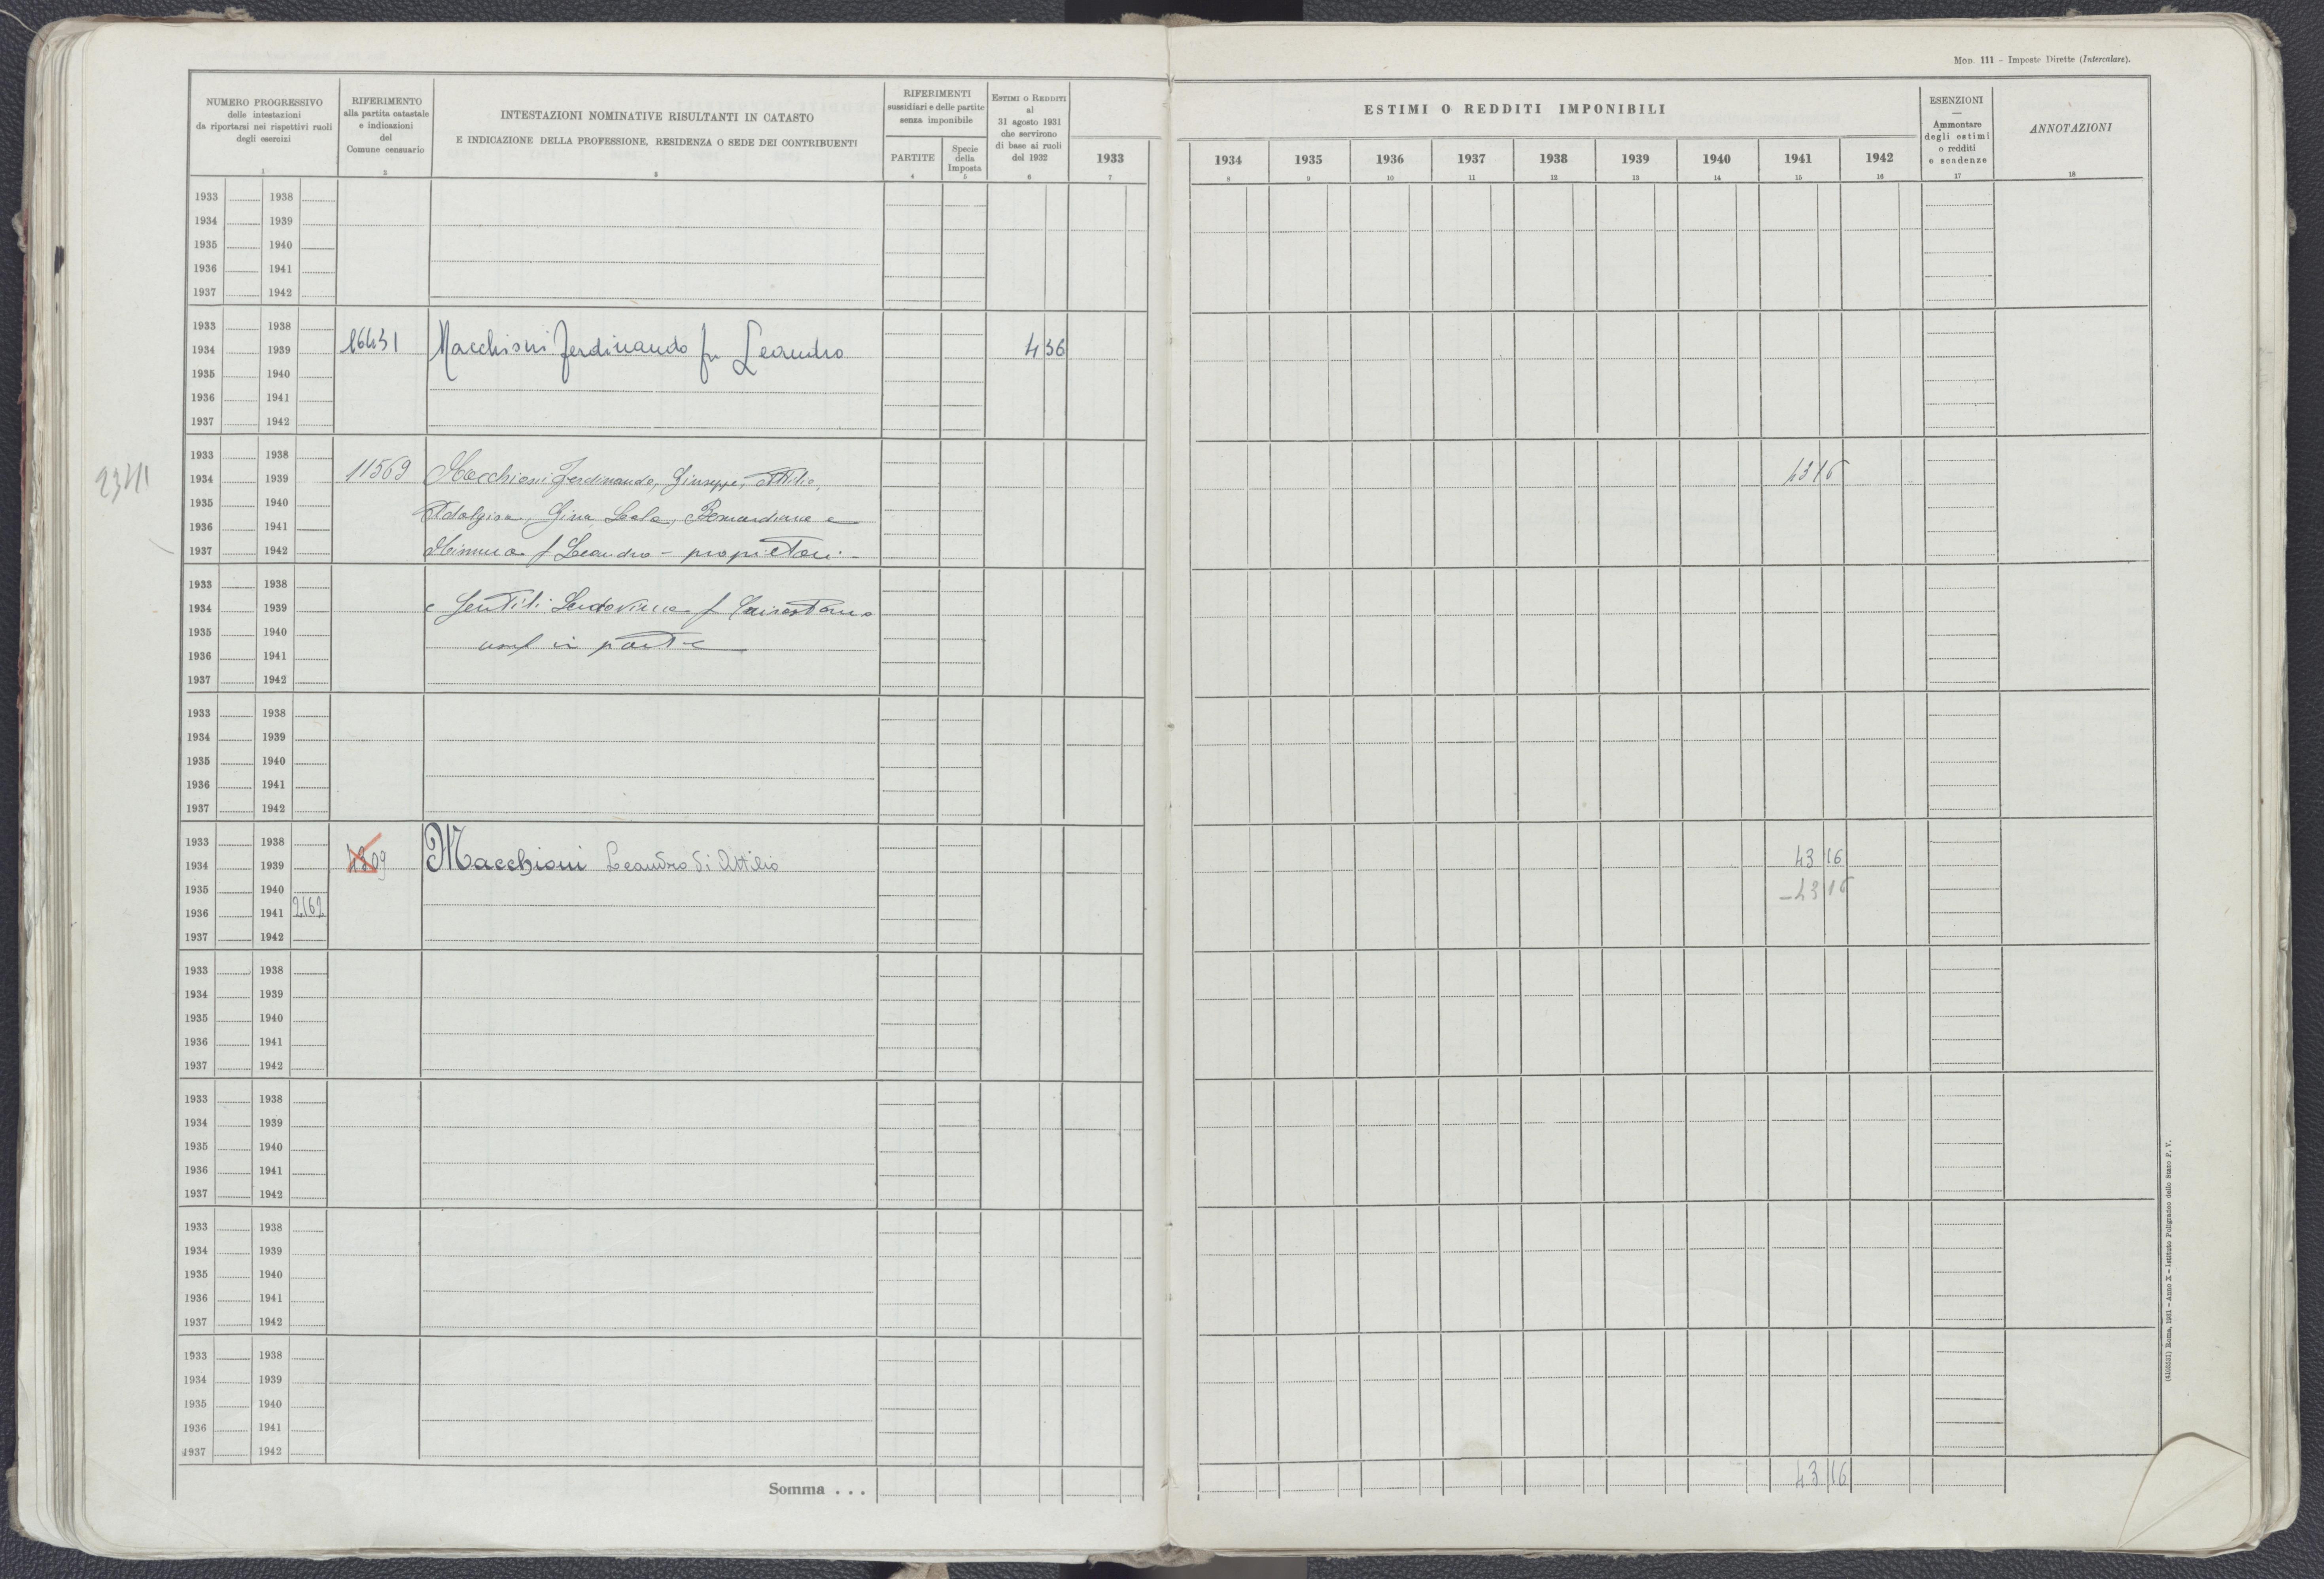 Mod. 111 – Imposte Dirette (Intercalare).
NUMERO PROGRESSIVO
delle intestazioni
da riportarsi nei rispettivi ruoli
degli esercizi
1
RIFERIMENTO
alla partita catastale
e indicazioni
del
Comune censuario
2
INTESTAZIONI NOMINATIVE RISULTANTI IN CATASTO
E INDICAZIONE DELLA PROFESSIONE, RESIDENZA O SEDE DEI CONTRIBUENTI
3
RIFERIMENTI
sussidiari e delle partite
senza imponibile
PARTITE
4
Specie
della
Imposta
5
Estimi o Redditi
al
31 agosto 1931
che servirono
di base ai ruoli
del 1932
6
1933
7
ESTIMI O REDDITI IMPONIBILI
1934 1935 1936 1937 1938 1939 1940 1941 1942
8 9 10 11 12 13 14 15 16
ESENZIONI
—
Ammontare
degli estimi
o redditi
e scadenze
17
ANNOTAZIONI
18
1933 1938
1934 1939
1935 1940
1936 1941
1937 1942
1933 1938
1934 1939 16431 Macchioni Ferdinando fu Leandro 4 36
1935 1940
1936 1941
1937 1942
1933 1938
1934 1939 11569 Macchioni Ferdinando, Giuseppe, Attilio, 43 16
1935 1940 Adalgisa, Gina, 
1936 1941
1937 1942 f Leandro – proprietari
1933 1938
1934 1939 e Gentili Ludovina f
1935 1940
1936 1941 usuf in parte
1937 1942
1933 1938
1934 1939
1935 1940
1936 1941
1937 1942
1933 1938
1934 1939 Macchioni Leandro di Attilio 43 16
1935 1940 – 43 16
1936 1941 2162
1937 1942
1933 1938
1934 1939
1935 1940
1936 1941
1937 1942
1933 1938
1934 1939
1935 1940
1936 1941
1937 1942
1933 1938
1934 1939
1935 1940
1936 1941
1937 1942
1933 1938
1934 1939
1935 1940
1936 1941
1937 1942
Somma . . . 43 16